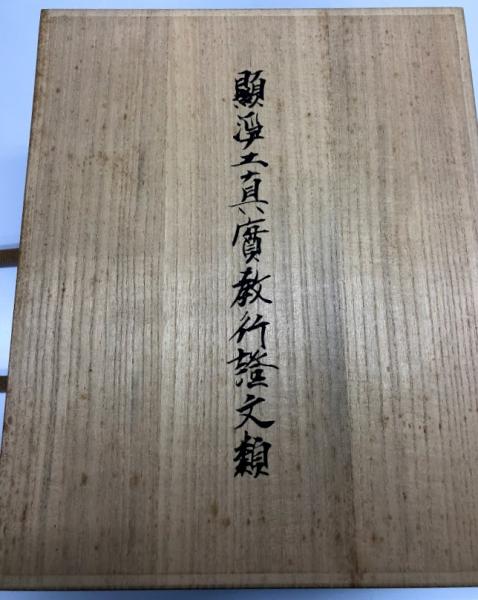 顯淨土真實教行證文類